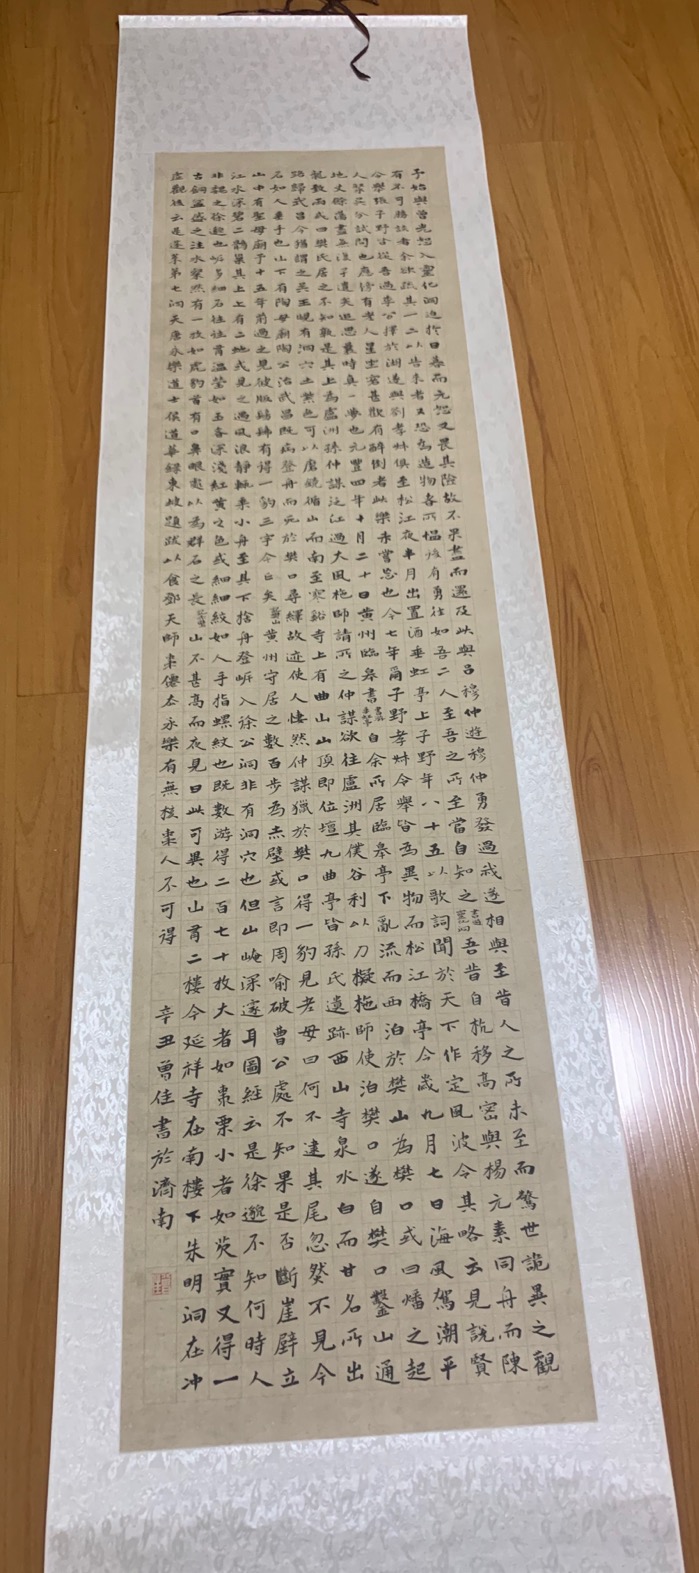 予始與曾元恕入靈化洞迫於日暮而元恕又畏其險故不果盡而還及此與呂穆仲遊穆仲勇發過我遂相與至昔人之所未至而驚世詭異之觀
有不可勝談者余欲疏其一二以告來者又恐為造物者所慍然有勇往如吾二人至吾之所至當自知之書靈化洞吾昔自杭移高密與楊元素同舟而陳
令舉張子野皆從吾過李公擇於湖遂與劉孝叔俱至松江夜半月出置酒垂虹亭上子野年八十五以歌詞聞於天下作定風波令其略云見說賢
人聚吳分試問也應傍有老人星坐客甚歡有醉倒者此樂未嘗忘也今七年爾子野孝叔令舉皆為異物而松江橋亭今歲九月七日海風駕潮平
地丈餘蕩盡無復孑遺矣追思曩時真一夢也元豐四年十月二十日黃州臨皋書自余所居臨皋亭下亂流而西泊於樊山為樊口或曰燔之起
龍致雨或曰樊氏居之不知孰是其上為盧洲孫仲謀泛江過大風柂師請所之仲謀欲往盧洲其僕谷利以刀擬柂師使泊樊口遂自樊口鑿山通
路歸武昌今猶謂之吳王峴有洞穴土紫色可以磨鏡循山而南至寒谿寺上有曲山山頂即位壇九曲亭皆孫氏遺跡西山寺泉水白而甘名所出
名如人垂手也山下有陶母廟陶公治武昌既病登舟而死於樊口尋繹故迹使人悽然仲謀獵於樊口得一豹見老母曰何不逮其尾忽然不見今
山中有聖母廟予十五年前過之見彼版彷彿有得一豹三字今亡矣記樊山黃州守居之數百步為赤壁或言即周瑜破曹公處不知果是否斷崖壁立
江水深碧二鶻巢其上上有二蛇或見之遇風浪靜輒乘小舟至其下捨舟登岍入徐公洞非有洞穴也但山崦深邃耳圖經云是徐邈不知何時人
非魏之徐邈也岍多細石往往有溫瑩如玉者深淺紅黃之色或細細紋如人手指螺紋也既數游得二百七十枚大者如棗栗小者如芡實又得一
古銅盆盛之注水粲然有一枚如虎豹首有口鼻眼處以為群石之長記赤壁山不甚高而夜見日此可異也山有二樓今延祥寺在南樓下朱明洞在冲
虛觀後云是蓬萊第七洞天唐永樂道士侯道華錄東坡題跋以食鄧天師棗僊去永樂有無核棗人不可得 辛丑曾佳書於濟南